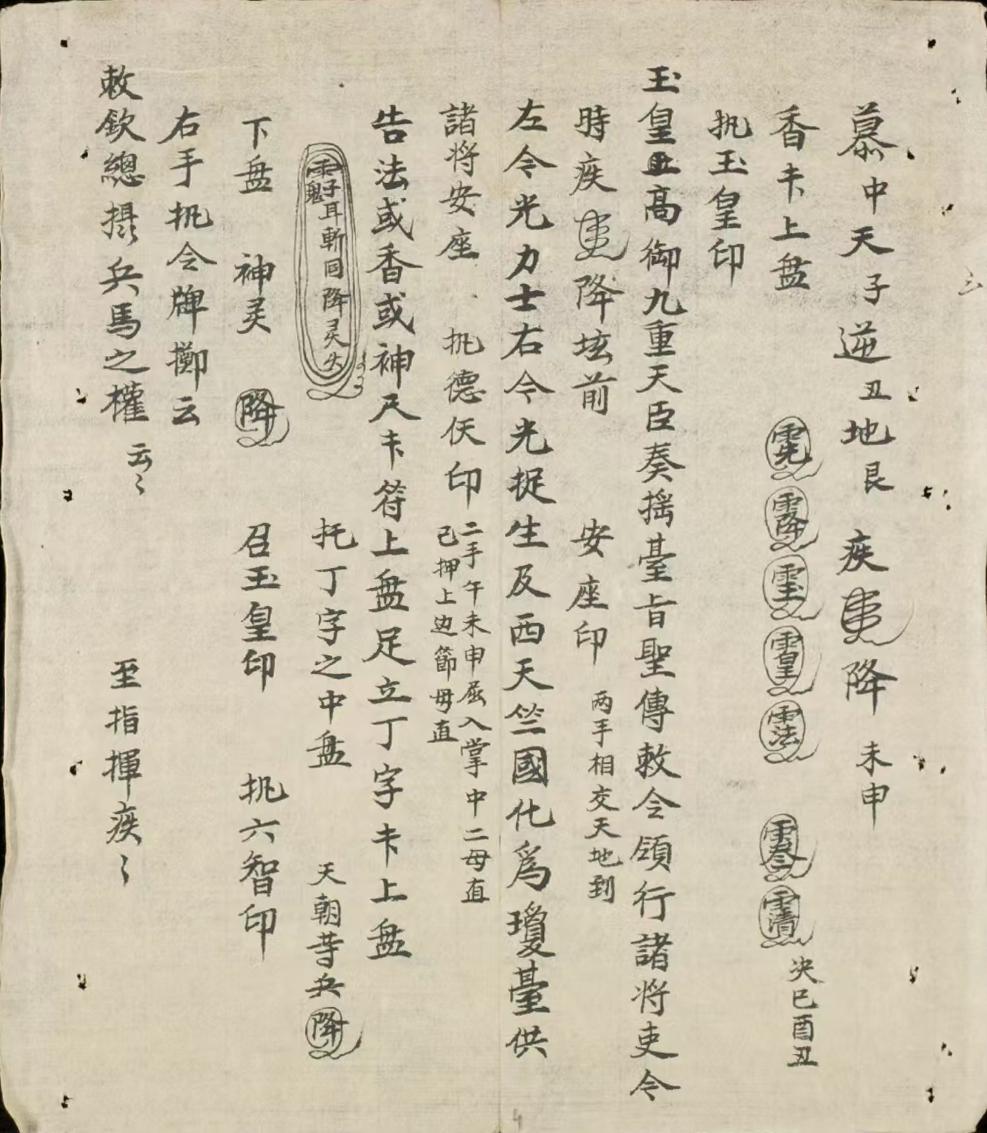 慕中天子逆丑地艮 疾 降 未申
香卡上盘 䨻 决巳酉丑
执玉皇印
玉皇至高御九重天臣奏摇臺旨聖傳敕令領行諸将吏令
時疾 降坛前 安座印 两手相交天地到
左令光力士右令光捉生及西天竺國化為瓊臺供
諸将安座 执德仸印 二手午未申屈入掌中二毋直
己押上边節毋直
告法或香或神尺卡符上盘足立丁字卡上盘
耳斬囘降灵 托丁字之中盘 天朝䓁兵降
下盘 神灵 降 召玉皇印 执六智印
右手执令牌擲云
敕欽總摄兵馬之權云〻 至指揮疾〻